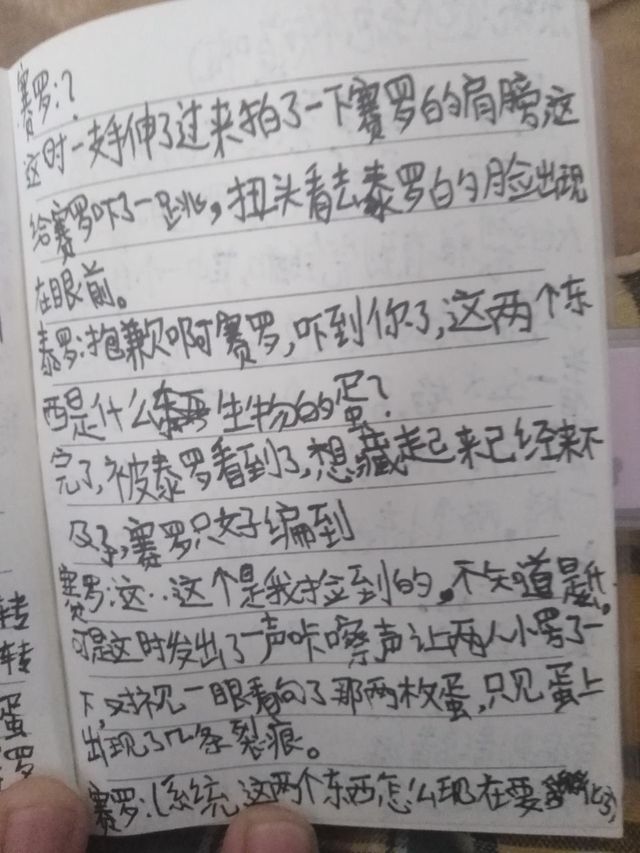 赛罗:?
这时一支手伸了过来拍了一下赛罗的肩膀,这
给赛罗吓了一跳,扭头看去泰罗的脸出现
在眼前。
泰罗:抱歉啊赛罗,吓到你了,这两个东
西是什么生物的蛋?
完了,被泰罗看到了,想藏起来已经来不
及了,赛罗只好编到
赛罗:这..这个是我捡到的。不知道是什
可是这时发出了一声咔嚓声让两人小愣了一
下,对视一眼看向了那两枚蛋,只见蛋上
出现了几条裂痕。
赛罗:(系统,这两个东西怎么现在要
转
转
蛋
罗